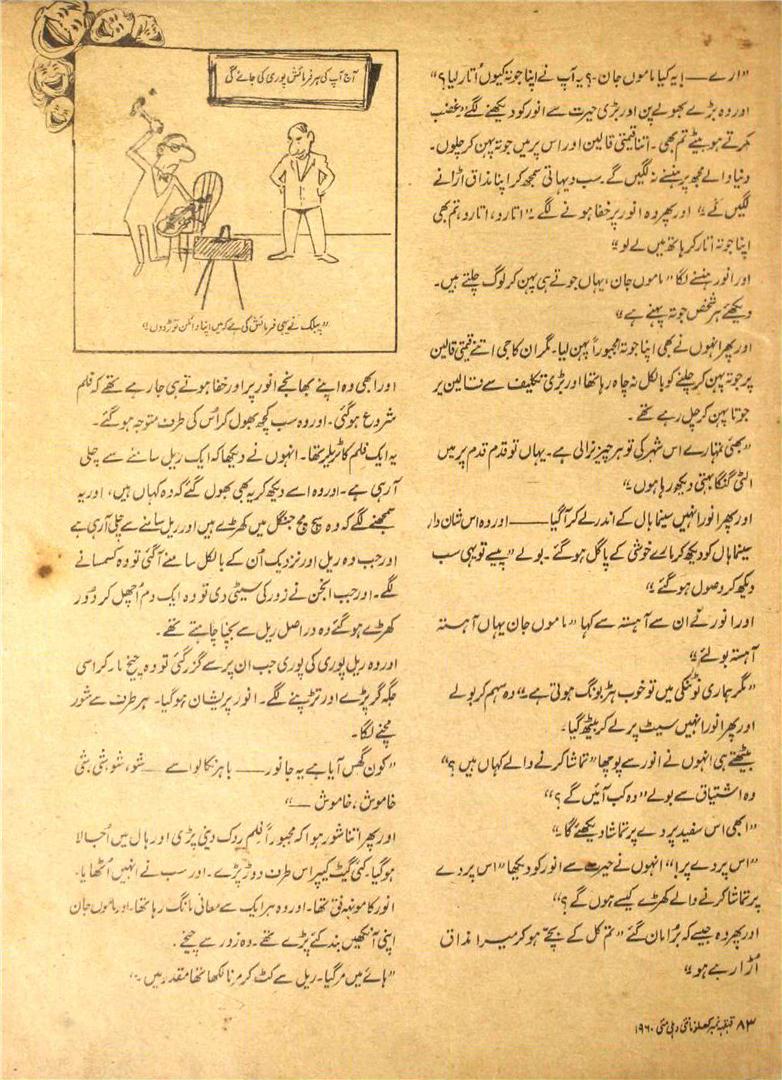 "ارے — ! یہ کیا ماموں جان۔؟ یہ آپ نے اپنا جوتہ کیوں اُتار لیا؟"
اور وہ بڑے بھولے پن اور بڑی حیرت سے انور کو دیکھنے لگے "غضب
کرتے ہو بیٹے تم بھی۔ اتنا قیمتی قالین اور اس پر میں جوتہ پہن کر چلوں۔
دنیا والے مجھ پر ہنسنے نہ لگیں گے۔ سب دیہاتی سمجھ کر اپنا مذاق اڑانے
لگیں گے۔" اور پھر وہ انور پر خفا ہونے لگے۔ "اتارو، اتارو، تم بھی
اپنا جوتہ اتار کر ہاتھ میں لے لو۔"
اور انور ہنسنے لگا "ماموں جان، یہاں جوتے ہی پہن کر لوگ چلتے ہیں۔
دیکھئے ہر شخص جوتہ پہنے ہے۔"
اور پھر انہوں نے بھی اپنا جوتہ مجبوراً پہن لیا۔ مگر ان کا جی اتنے قیمتی قالین
پر جوتہ پہن کر چلنے کو بالکل نہ چاہ رہا تھا اور بڑی تکلیف سے قالین پر
جوتا پہن کر چل رہے تھے۔
"بھئی تمہارے اس شہر کی تو ہر چیز نرالی ہے۔ یہاں تو قدم قدم پر میں
الٹی گنگا بہتی دیکھ رہا ہوں۔"
اور پھر انور انہیں سینما ہال کے اندر لے کر آ گیا —— اور وہ اس شان دار
سینما ہال کو دیکھ کر مارے خوشی کے پاگل ہو گئے۔ بولے "پیسے تو یہی سب
دیکھ کر وصول ہو گئے۔"
اور انور نے ان سے آہستہ سے کہا "ماموں جان یہاں آہستہ
آہستہ بولئے۔"
"مگر ہماری نوٹنکی میں تو خوب ہڑبونگ ہوتی ہے۔" وہ سہم کر بولے
اور پھر انور انہیں سیٹ پر لے کر بیٹھ گیا۔
بیٹھتے ہی انہوں نے انور سے پوچھا "تماشا کرنے والے کہاں ہیں؟"
وہ اشتیاق سے بولے "وہ کب آئیں گے؟"
"ابھی اس سفید پردے پر تماشا دیکھئے گا۔"
"اس پردے پر!" انہوں نے حیرت سے انور کو دیکھا "اس پردے
پر تماشا کرنے والے کھڑے کیسے ہوں گے؟"
اور پھر وہ جیسے کہ بُرا مان گئے "تم کل کے بچے ہو کر میرا مذاق
اُڑا رہے ہو۔"
آج آپ کی ہر فرمائش پوری کی جائے گی
"پبلک نے یہی فرمائش کی ہے کہ میں اپنا وائلن توڑ دوں!"
اور ابھی وہ اپنے بھانجے انور پر اور خفا ہوتے ہی جا رہے تھے کہ فلم
شروع ہو گئی۔ اور وہ سب کچھ بھول کر اُس کی طرف متوجہ ہو گئے۔
یہ ایک فلم کا ٹریلر تھا۔ انہوں نے دیکھا کہ ایک ریل سامنے سے چلی
آرہی ہے۔ اور وہ اسے دیکھ کر یہ بھی بھول گئے کہ وہ کہاں ہیں، اور یہ
سمجھنے لگے کہ وہ سچ مچ جنگل میں کھڑے ہیں اور ریل سامنے سے چلی آرہی ہے
اور جب وہ ریل اور نزدیک اُن کے بالکل سامنے آ گئی تو وہ کسمسانے
لگے۔ اور جب انجن نے زور کی سیٹی دی تو وہ ایک دم اُچھل کر دُور
کھڑے ہو گئے وہ دراصل ریل سے بچنا چاہتے تھے۔
اور وہ ریل پوری کی پوری جب ان پر سے گزر گئی تو وہ چیخ مار کر اسی
جگہ گر پڑے اور تڑپنے لگے۔ انور پریشان ہو گیا۔ ہر طرف سے شور
مچنے لگا۔
"کون گھس آیا ہے یہ جانور —— باہر نکالو اسے — شو، شو شی شی
خاموش، خاموش —"
اور پھر اتنا شور ہوا کہ مجبوراً فلم روک دینی پڑی اور ہال میں اُجالا
ہو گیا۔ کئی گیٹ کیپر اس طرف دوڑ پڑے۔ اور سب نے انہیں اُٹھایا۔
انور کا مونہہ فق تھا۔ اور وہ ہر ایک سے معافی مانگ رہا تھا۔ اور ماموں جان
اپنی آنکھیں بند کئے پڑے تھے۔ وہ زور سے چیخے۔
"ہائے میں مر گیا۔ ریل سے کٹ کر مرنا لکھا تھا مقدر میں۔"
۸۳ قہقہہ نمبر کھلونا نئی دہلی مئی ۱۹۶۰